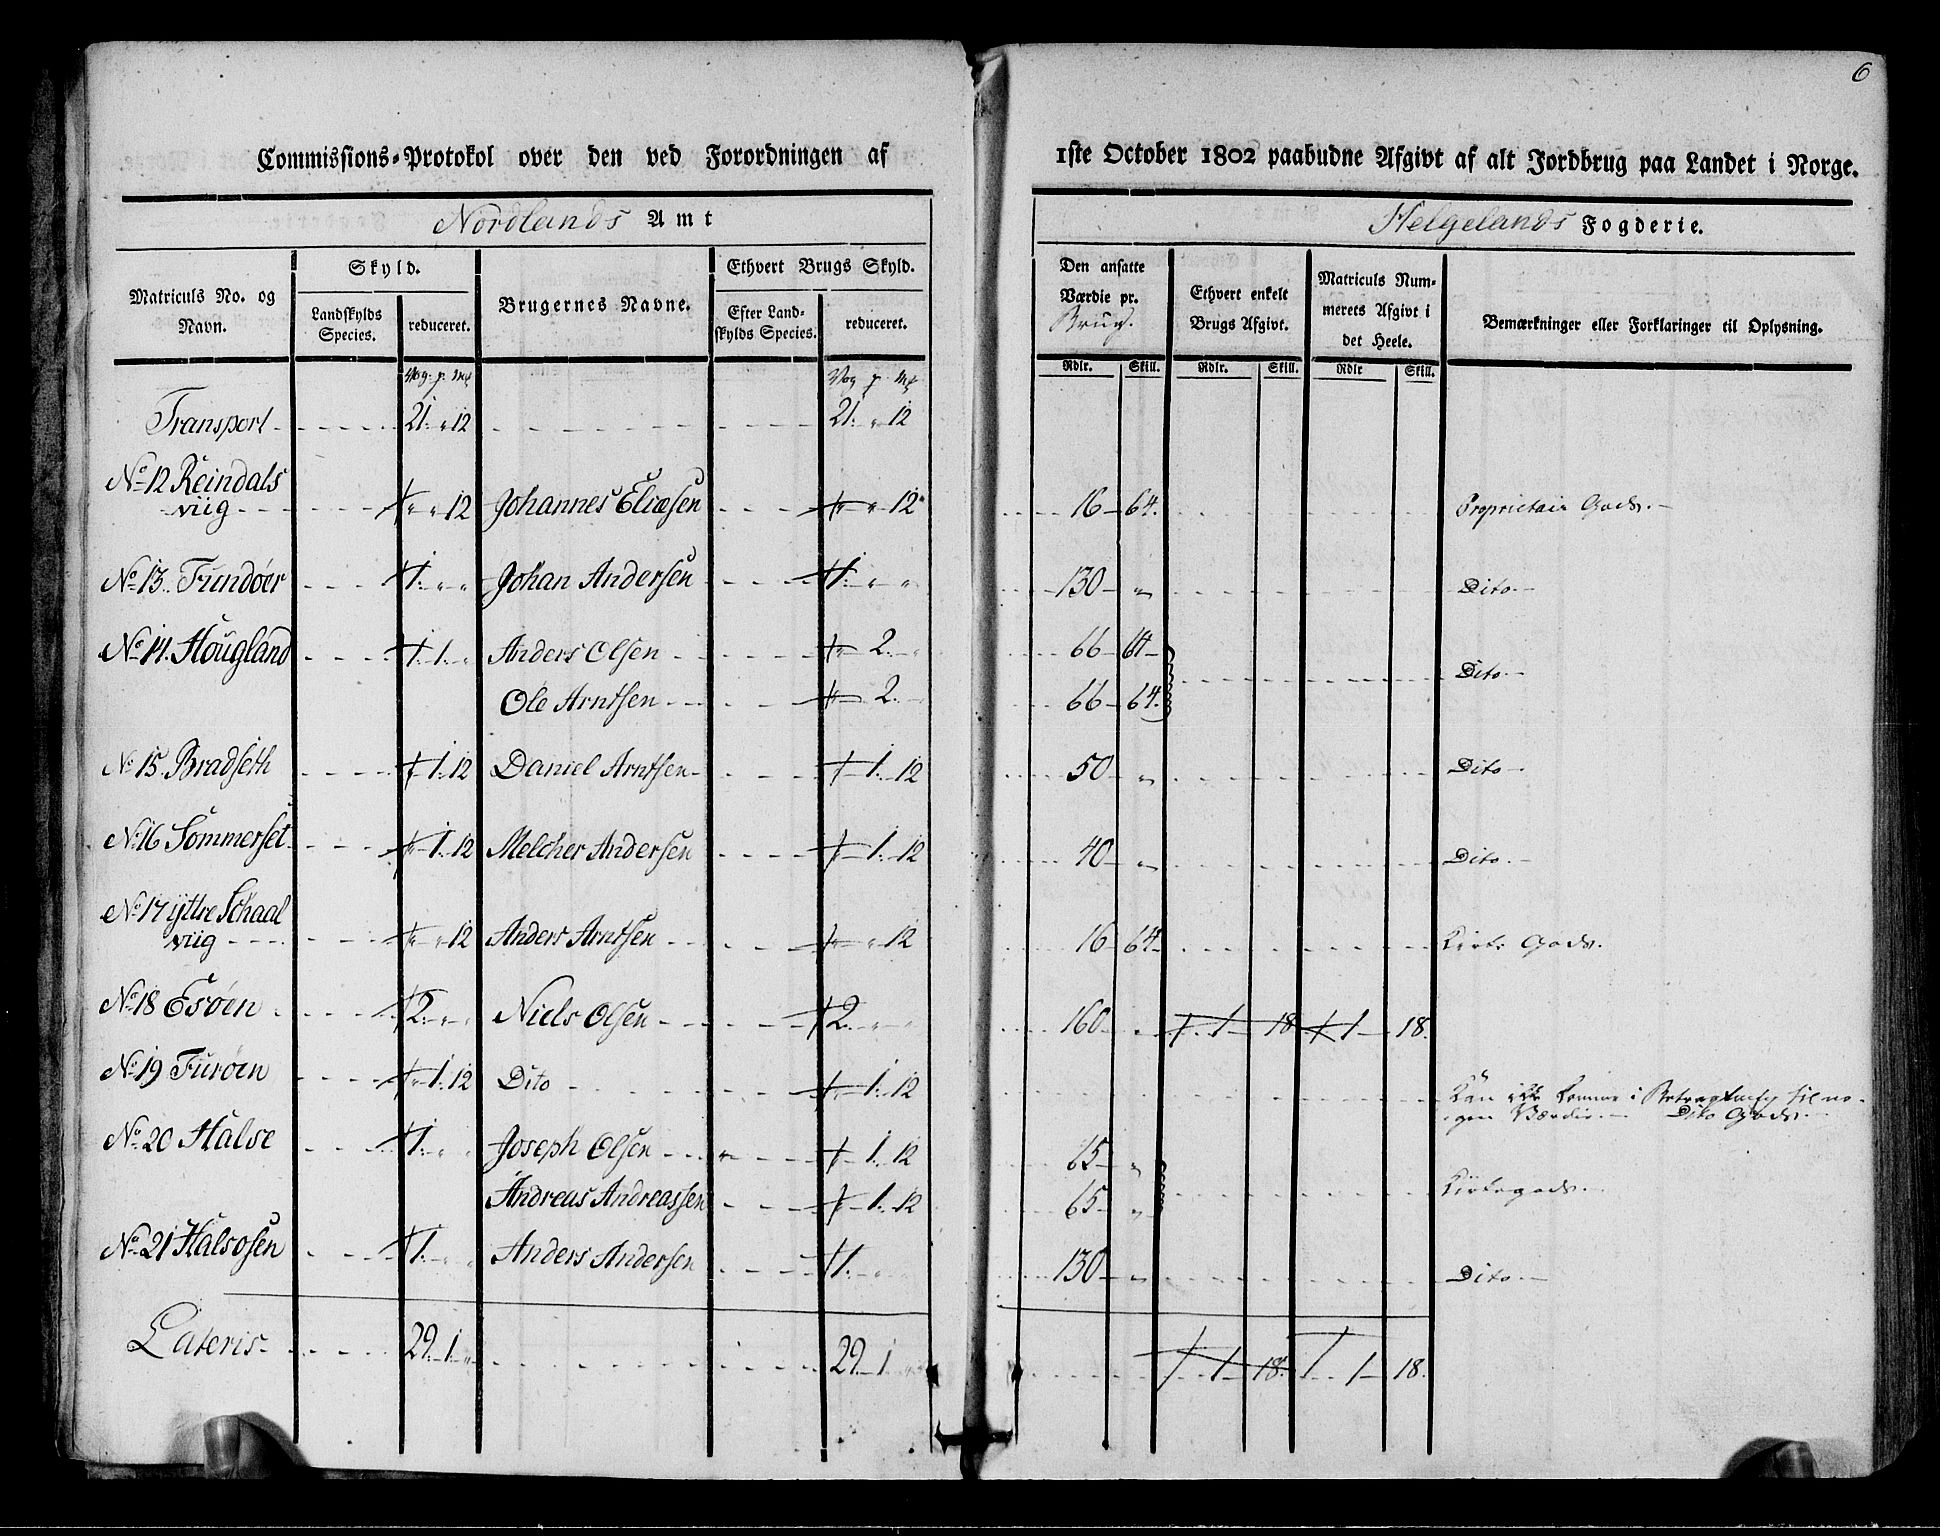 6
Commissions-Protokol over den ved Forordningen af 1ste October 1802 paabudne Afgivt af alt Jordbrug paa Landet i Norge.
Nordlands Amt Helgelands Fogderie.
Matriculs No. og Navn. Skyld. Landskylds Species. reduceret. Brugernes Navne. Ethvert Brugs Skyld. Efter Landskylds Species. reduceret. Den ansatte Værdie pr. Brug. Ethvert enkelt Brugs Afgivt. Matriculs Nummerets Afgivt i det Heele. Bemærkninger eller Forklaringer til Oplysning.
Vog. p. Mk Vog p. Mk Rdlr. Skill. Rdlr. Skill. Rdlr Skill.
Transport 21. " 12 21. " 12
No 12 Reindals
viig " " 12 Johannes Eliæsen " " 12 16 64. Proprietair Gods.
No 13. Tundøer 1. " " Johan Andersen 1. " " 130 " Dito.
No 14. Hougland 1. 1. " Anders Olsen " 2. " 66 64 Dito.
Ole Arntsen " 2. 66 64.
No 15. Bradseth 1. 12 Daniel Arntsen 1. 12 50 " Dito.
No 16 Sommerset " 1. 12 Melcher Andersen 1. 12 40 " Dito.
No 17 ÿttre Schaal
viig " " 12 Anders Arntsen " " 12 16 64 Kirke Gods.
No 18 Esøen 2. " " Niels Olsen 2. " " 160 " 1 18 1 18.
No 19 Furøen " 1. 12 Dito " 1. 12 Kan ikke komme i Betragtning til no-
gen Værdie. Dito Gods.
No 20 Halse 1. " " Joseph Olsen 1. 12 65 "
Andreas Andreassen 1. 12 65 " Kirkegods.
No 21 Halsosen 1. " " Anders Andersen 1. " " 130 " Dito.
Lateris 29. 1. " 29. 1 " 1 18. 1 18.